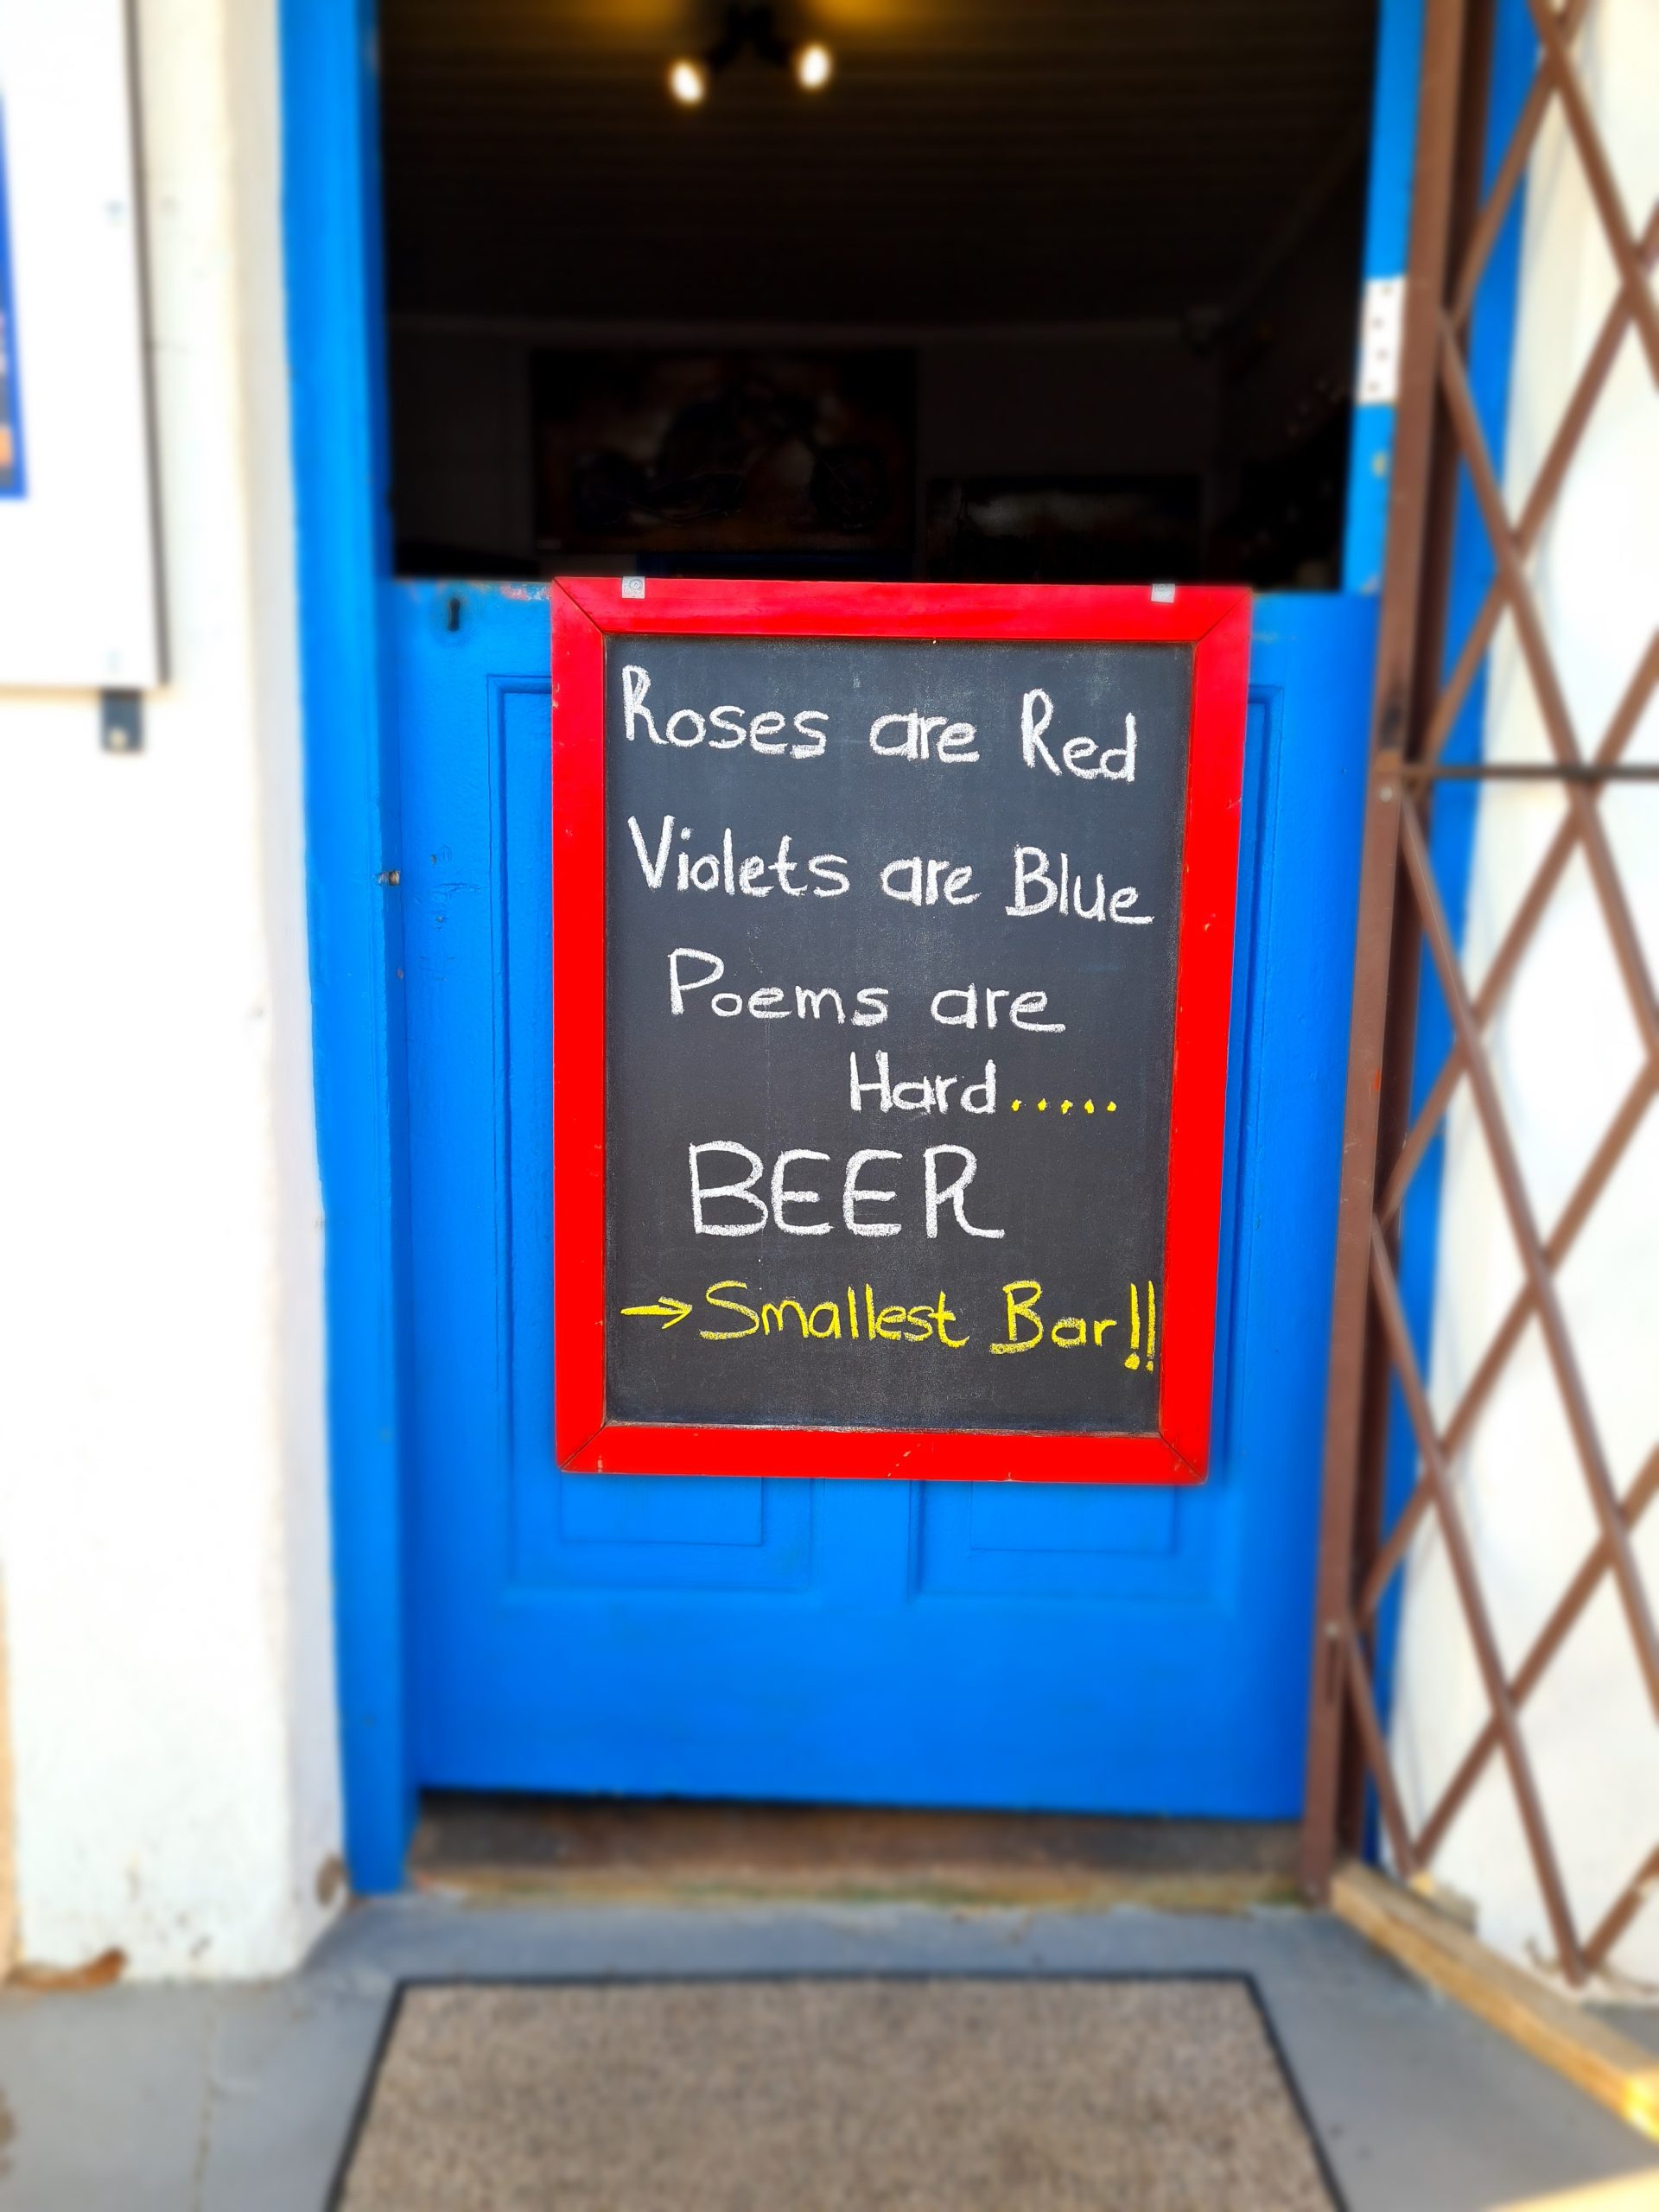 Roses are Red
Violets are Blue
Poems are
Hard.....
BEER
→Smallest Bar!!